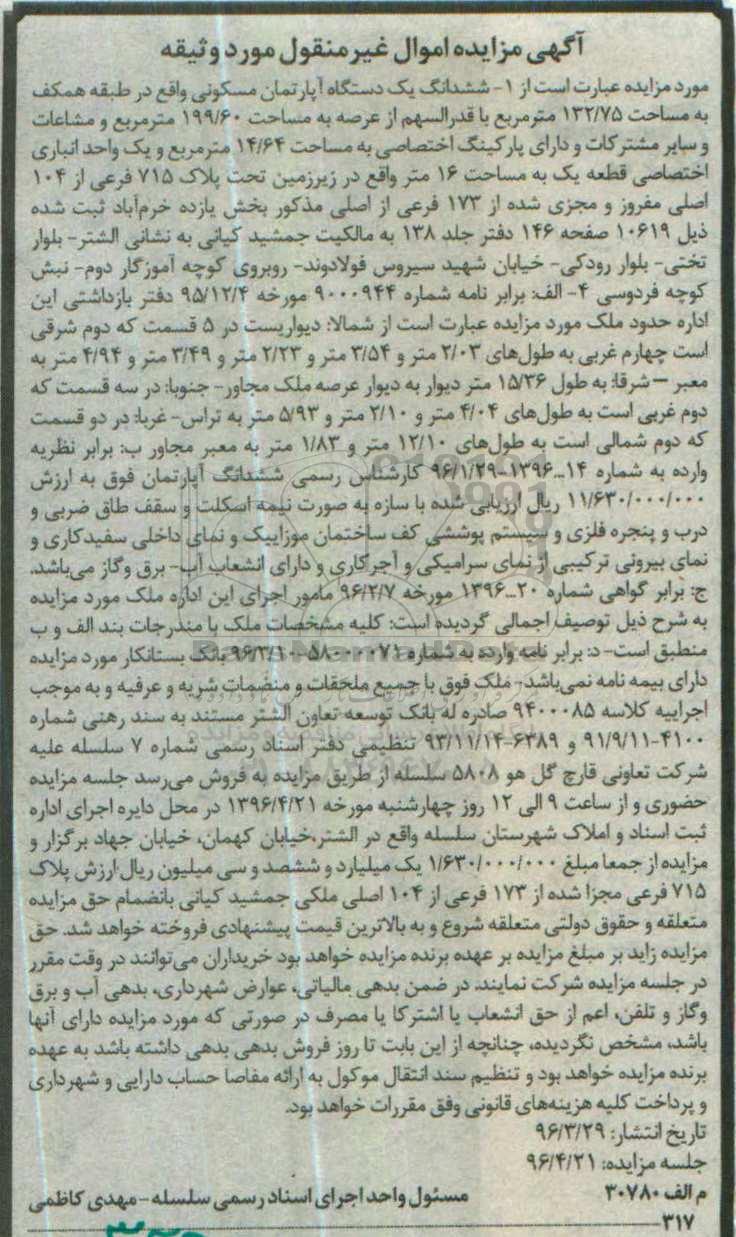 آگهی مزایده اموال غیرمنقول مورد وثیقه
مورد مزایده عبارت است از ۱- ششدانگ یک دستگاه آپارتمان مسکونی واقع در طبقه همکف
به مساحت ۱۳۲/۷۵ مترمربع با قدرالسهم از عرصه به مساحت ۱۹۹/۶۰ مترمربع و مشاعات
و سایر مشترکات و دارای پارکینگ اختصاصی به مساحت ۱۴/۶۴ مترمربع و یک واحد انباری
اختصاصی قطعه یک به مساحت ۱۶ متر واقع در زیرزمین تحت پلاک ۷۱۵ فرعی از ۱۰۴
اصلی مفروز و مجزی شده از ۱۷۳ فرعی از اصلی مذکور بخش یازده خرم‌آباد ثبت شده
ذیل ۱۰۶۱۹ صفحه ۱۴۶ دفتر جلد ۱۳۸ به مالکیت جمشید کیانی به نشانی الشتر- بلوار
تختی- بلوار رودکی- خیابان شهید سیروس فولادوند- روبروی کوچه آموزگار دوم- نبش
کوچه فردوسی ۴- الف: برابر نامه شماره ۹۰۰۰۹۴۴ مورخه ۹۵/۱۲/۴ دفتر بازداشتی این
اداره حدود ملک مورد مزایده عبارت است از شمالا: دیواریست در ۵ قسمت که دوم شرقی
است چهارم غربی به طول‌های ۲/۰۳ متر و ۳/۵۴ متر و ۲/۲۳ متر و ۳/۴۹ متر و ۴/۹۴ متر به
معبر – شرقا: به طول ۱۵/۳۶ متر دیوار به دیوار عرصه ملک مجاور- جنوبا: در سه قسمت که
دوم غربی است به طول‌های ۴/۰۴ متر و ۲/۱۰ متر و ۵/۹۳ متر به تراس- غربا: در دو قسمت
که دوم شمالی است به طول‌های ۱۲/۱۰ متر و ۱/۸۳ متر به معبر مجاور ب: برابر نظریه
وارده به شماره ۱۴...۱۳۹۶-۹۶/۱/۲۹ کارشناس رسمی ششدانگ آپارتمان فوق به ارزش
۱۱/۶۳۰/۰۰۰/۰۰۰ ریال ارزیابی شده با سازه به صورت نیمه اسکلت و سقف طاق ضربی و
درب و پنجره فلزی و سیستم پوششی کف ساختمان موزاییک و نمای داخلی سفیدکاری و
نمای بیرونی ترکیبی از نمای سرامیکی و آجرکاری و دارای انشعاب آب- برق وگاز می‌باشد.
ج: برابر گواهی شماره ۲۰...۱۳۹۶ مورخه ۹۶/۲/۷ مامور اجرای این اداره ملک مورد مزایده
به شرح ذیل توصیف اجمالی گردیده است: کلیه مشخصات ملک با مندرجات بند الف و ب
منطبق است- د: برابر نامه وارده به شماره بانک بستانکار مورد مزایده
دارای بیمه نامه نمی‌باشد- ملک فوق با جمیع ملحقات و منضمات شریه و عرفیه و به موجب
اجراییه کلاسه ۹۴۰۰۰۸۵ صادره له بانک توسعه تعاون الشتر مستند به سند رهنی شماره
۴۱۰۰-۹۱/۹/۱۱ و ۶۳۸۹-۹۳/۱۱/۱۴ تنظیمی دفتر اسناد رسمی شماره ۷ سلسله علیه
شرکت تعاونی قارچ گل هو ۵۸۰۸ سلسله از طریق مزایده به فروش می‌رسد جلسه مزایده
حضوری و از ساعت ۹ الی ۱۲ روز چهارشنبه مورخه ۱۳۹۶/۴/۲۱ در محل دایره اجرای اداره
ثبت اسناد و املاک شهرستان سلسله واقع در الشتر،خیابان کهمان، خیابان جهاد برگزار و
مزایده از جمعا مبلغ ۱/۶۳۰/۰۰۰/۰۰۰ یک میلیارد و ششصد و سی میلیون ریال ارزش پلاک
۷۱۵ فرعی مجزا شده از ۱۷۳ فرعی از ۱۰۴ اصلی ملکی جمشید کیانی بانضمام حق مزایده
متعلقه و حقوق دولتی متعلقه شروع و به بالاترین قیمت پیشنهادی فروخته خواهد شد. حق
مزایده زاید بر مبلغ مزایده بر عهده برنده مزایده خواهد بود خریداران می‌توانند در وقت مقرر
در جلسه مزایده شرکت نمایند. در ضمن بدهی مالیاتی، عوارض شهرداری، بدهی آب و برق
وگاز و تلفن، اعم از حق انشعاب یا اشترکا یا مصرف در صورتی که مورد مزایده دارای آنها
باشد، مشخص نگردیده، چنانچه از این بابت تا روز فروش بدهی بدهی داشته باشد به عهده
برنده مزایده خواهد بود و تنظیم سند انتقال موکول به ارائه مفاصا حساب دارایی و شهرداری
و پرداخت کلیه هزینه‌های قانونی وفق مقررات خواهد بود.
تاریخ انتشار: ۹۶/۳/۲۹
جلسه مزایده: ۹۶/۴/۲۱
م الف ۳۰۷۸۰ مسئول واحد اجرای اسناد رسمی سلسله - مهدی کاظمی
۳۱۷